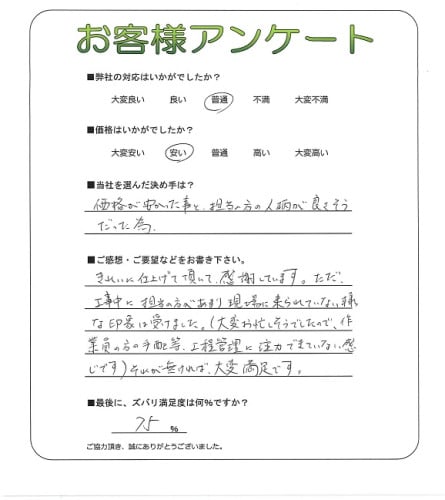 お客様アンケート
■弊社の対応はいかがでしたか？
大変良い 良い 普通 不満 大変不満
■価格はいかがでしたか？
大変安い 安い 普通 高い 大変高い
■当社を選んだ決め手は？
価格が安かった事と、担当の方の人柄が良さそう
だった為。
■ご感想・ご要望などをお書き下さい。
きれいに仕上げて頂いて、感謝しています。ただ、
工事中に担当の方があまり現場に来られていない様
な印象は受けました。（大変お忙しそうでしたので、作
業員の方の手配等、工程管理に注力できていない感
じです）それが無ければ、大変満足です。
■最後に、ズバリ満足度は何％ですか？
75 %
ご協力頂き、誠にありがとうございました。